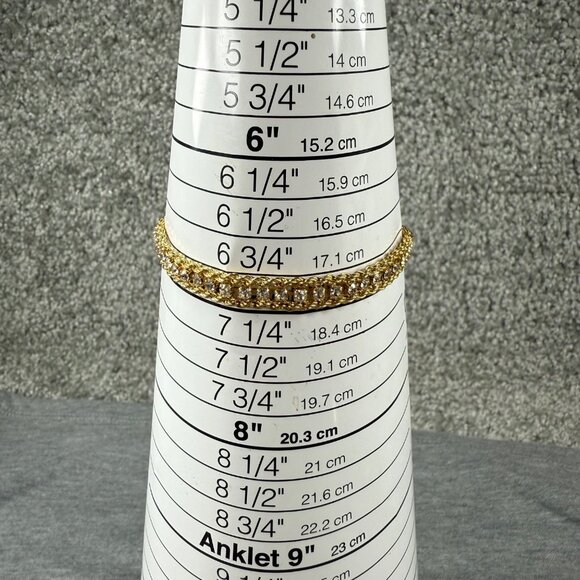 5 1/4" 13.3 cm
5 1/2" 14 cm
5 3/4" 14.6 cm
6" 15.2 cm
6 1/4" 15.9 cm
6 1/2" 16.5 cm
6 3/4" 17.1 cm
7 1/4" 18.4 cm
7 1/2" 19.1 cm
7 3/4" 19.7 cm
8" 20.3 cm
8 1/4" 21 cm
8 1/2" 21.6 cm
8 3/4" 22.2 cm
Anklet 9" 23 cm